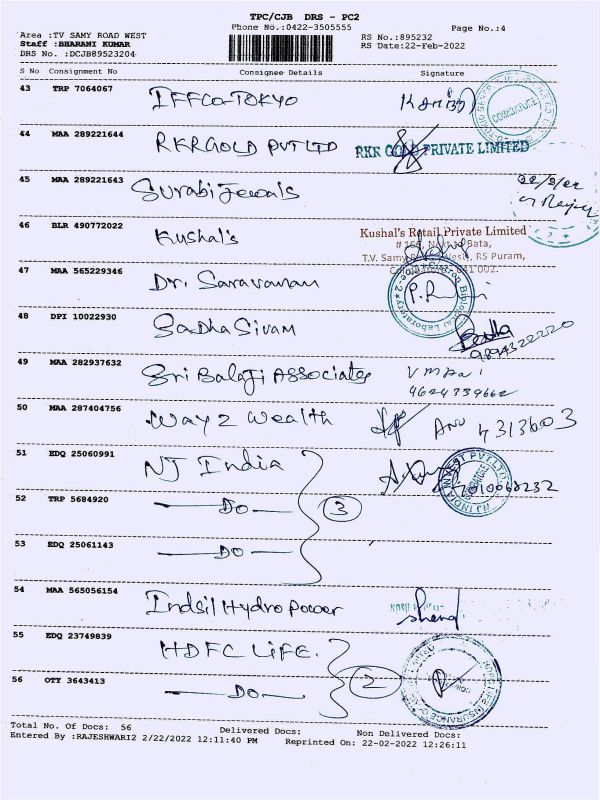 TPC/CJB DRS - PC2
Phone No.:0422-3505555 Page No.:4
Area :TV SAMY ROAD WEST RS No.:895232
Staff :BHARANI KUMAR RS Date:22-Feb-2022
DRS No. :DCJB89523204
S No Consignment No Consignee Details Signature
43 TRP 7064067 IFFCO-TOKYO
COIMBATORE
44 MAA 289221644 RKRGOLD PVT LTD RKR GOLD PRIVATE LIMITED
45 MAA 289221643 Surabi Jewals 22/2/22
46 BLR 490772022 Kushal's Kushal's Retail Private Limited
Next to Bata,
T.V. Samy Road West, RS Puram,
47 MAA 565229346 Dr. Saravanan
Biological Laboratory
48 DPI 10022930 SadhaSivam
9894322220
49 MAA 282937632 Sri Balaji Associates
9624739662
50 MAA 287404756 Way 2 Wealth Anu 7313603
51 EDQ 25060991 NJ India
NJ INDIA INVEST PVT LTD
7010068232
52 TRP 5684920 —Do— 3
53 EDQ 25061143 —Do—
54 MAA 565056154 Indsil Hydro Power
55 EDQ 23749839 HDFC LIFE.
56 OTY 3643413 —Do— 2
Total No. Of Docs: 56 Delivered Docs: Non Delivered Docs:
Entered By :RAJESHWARI2 2/22/2022 12:11:40 PM Reprinted On: 22-02-2022 12:26:11